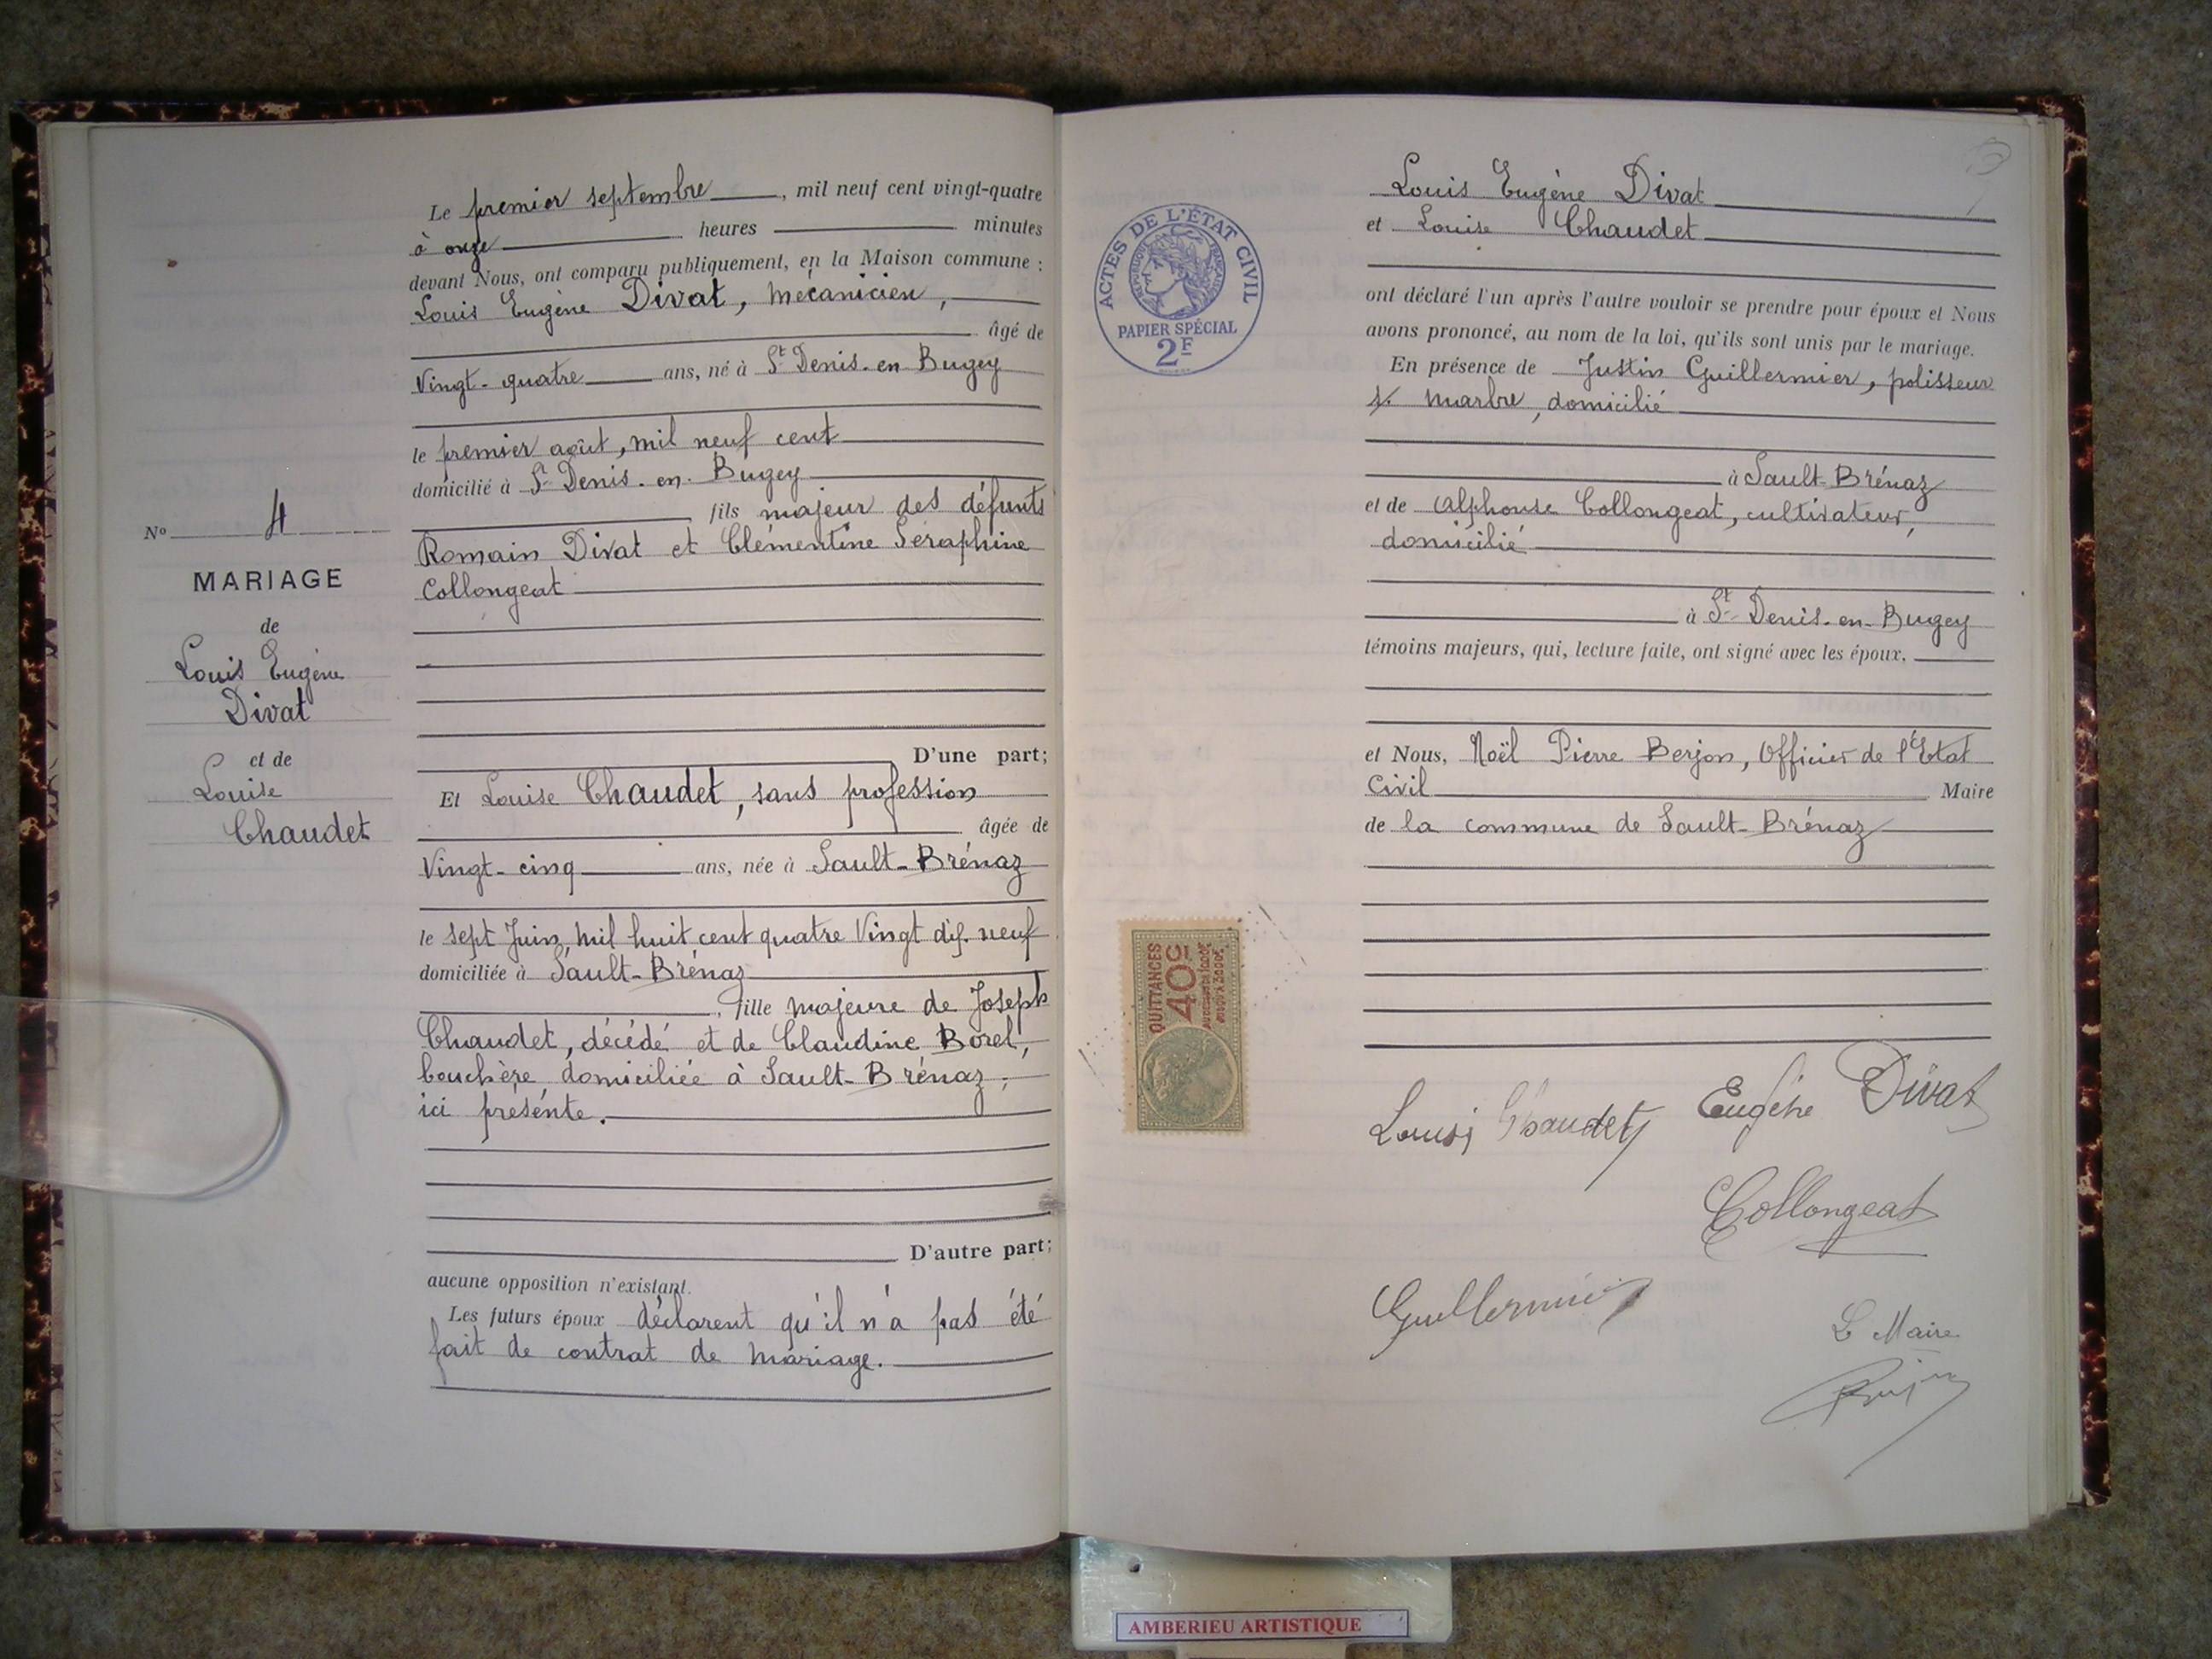 Le premier septembre, mil neuf cent vingt-quatre
à onze heures minutes
devant Nous, ont comparu publiquement, en la Maison commune :
Louis Eugène Divat, mécanicien,
âgé de
Vingt-quatre ans, né à St Denis-en-Bugey
le premier août, mil neuf cent
domicilié à St Denis-en-Bugey
fils majeur des défunts
Romain Divat et Clémentine Séraphine
Collongeat
D'une part;
Et Louise Chaudet, sans profession
âgée de
Vingt-cinq ans, née à Sault-Brénaz
le sept Juin, mil huit cent quatre Vingt dix neuf
domiciliée à Sault-Brénaz
, fille majeure de Joseph
Chaudet, décédé et de Claudine Borel,
bouchère domiciliée à Sault-Brénaz,
ici présente.
D'autre part;
aucune opposition n'existant.
Les futurs époux déclarent qu'il n'a pas été
fait de contrat de mariage.
No 4
MARIAGE
de
Louis Eugène
Divat
et de
Louise
Chaudet
ACTES DE L'ÉTAT CIVIL
RÉPUBLIQUE FRANÇAISE
PAPIER SPÉCIAL
2F
Louis Eugène Divat
et Louise Chaudet
ont déclaré l'un après l'autre vouloir se prendre pour époux et Nous
avons prononcé, au nom de la loi, qu'ils sont unis par le mariage.
En présence de Justin Guillermier, polisseur
s/. marbre, domicilié
à Sault-Brénaz
et de Alphonse Collongeat, cultivateur,
domicilié
à St Denis-en-Bugey
témoins majeurs, qui, lecture faite, ont signé avec les époux,
et Nous, Noël Pierre Berjon, Officier de l'Etat
Civil Maire
de la commune de Sault-Brénaz
QUITTANCES
40c
Chaudet Eugène Divat
Collongeat
Guillermier
Le Maire
Berjon
AMBERIEU ARTISTIQUE